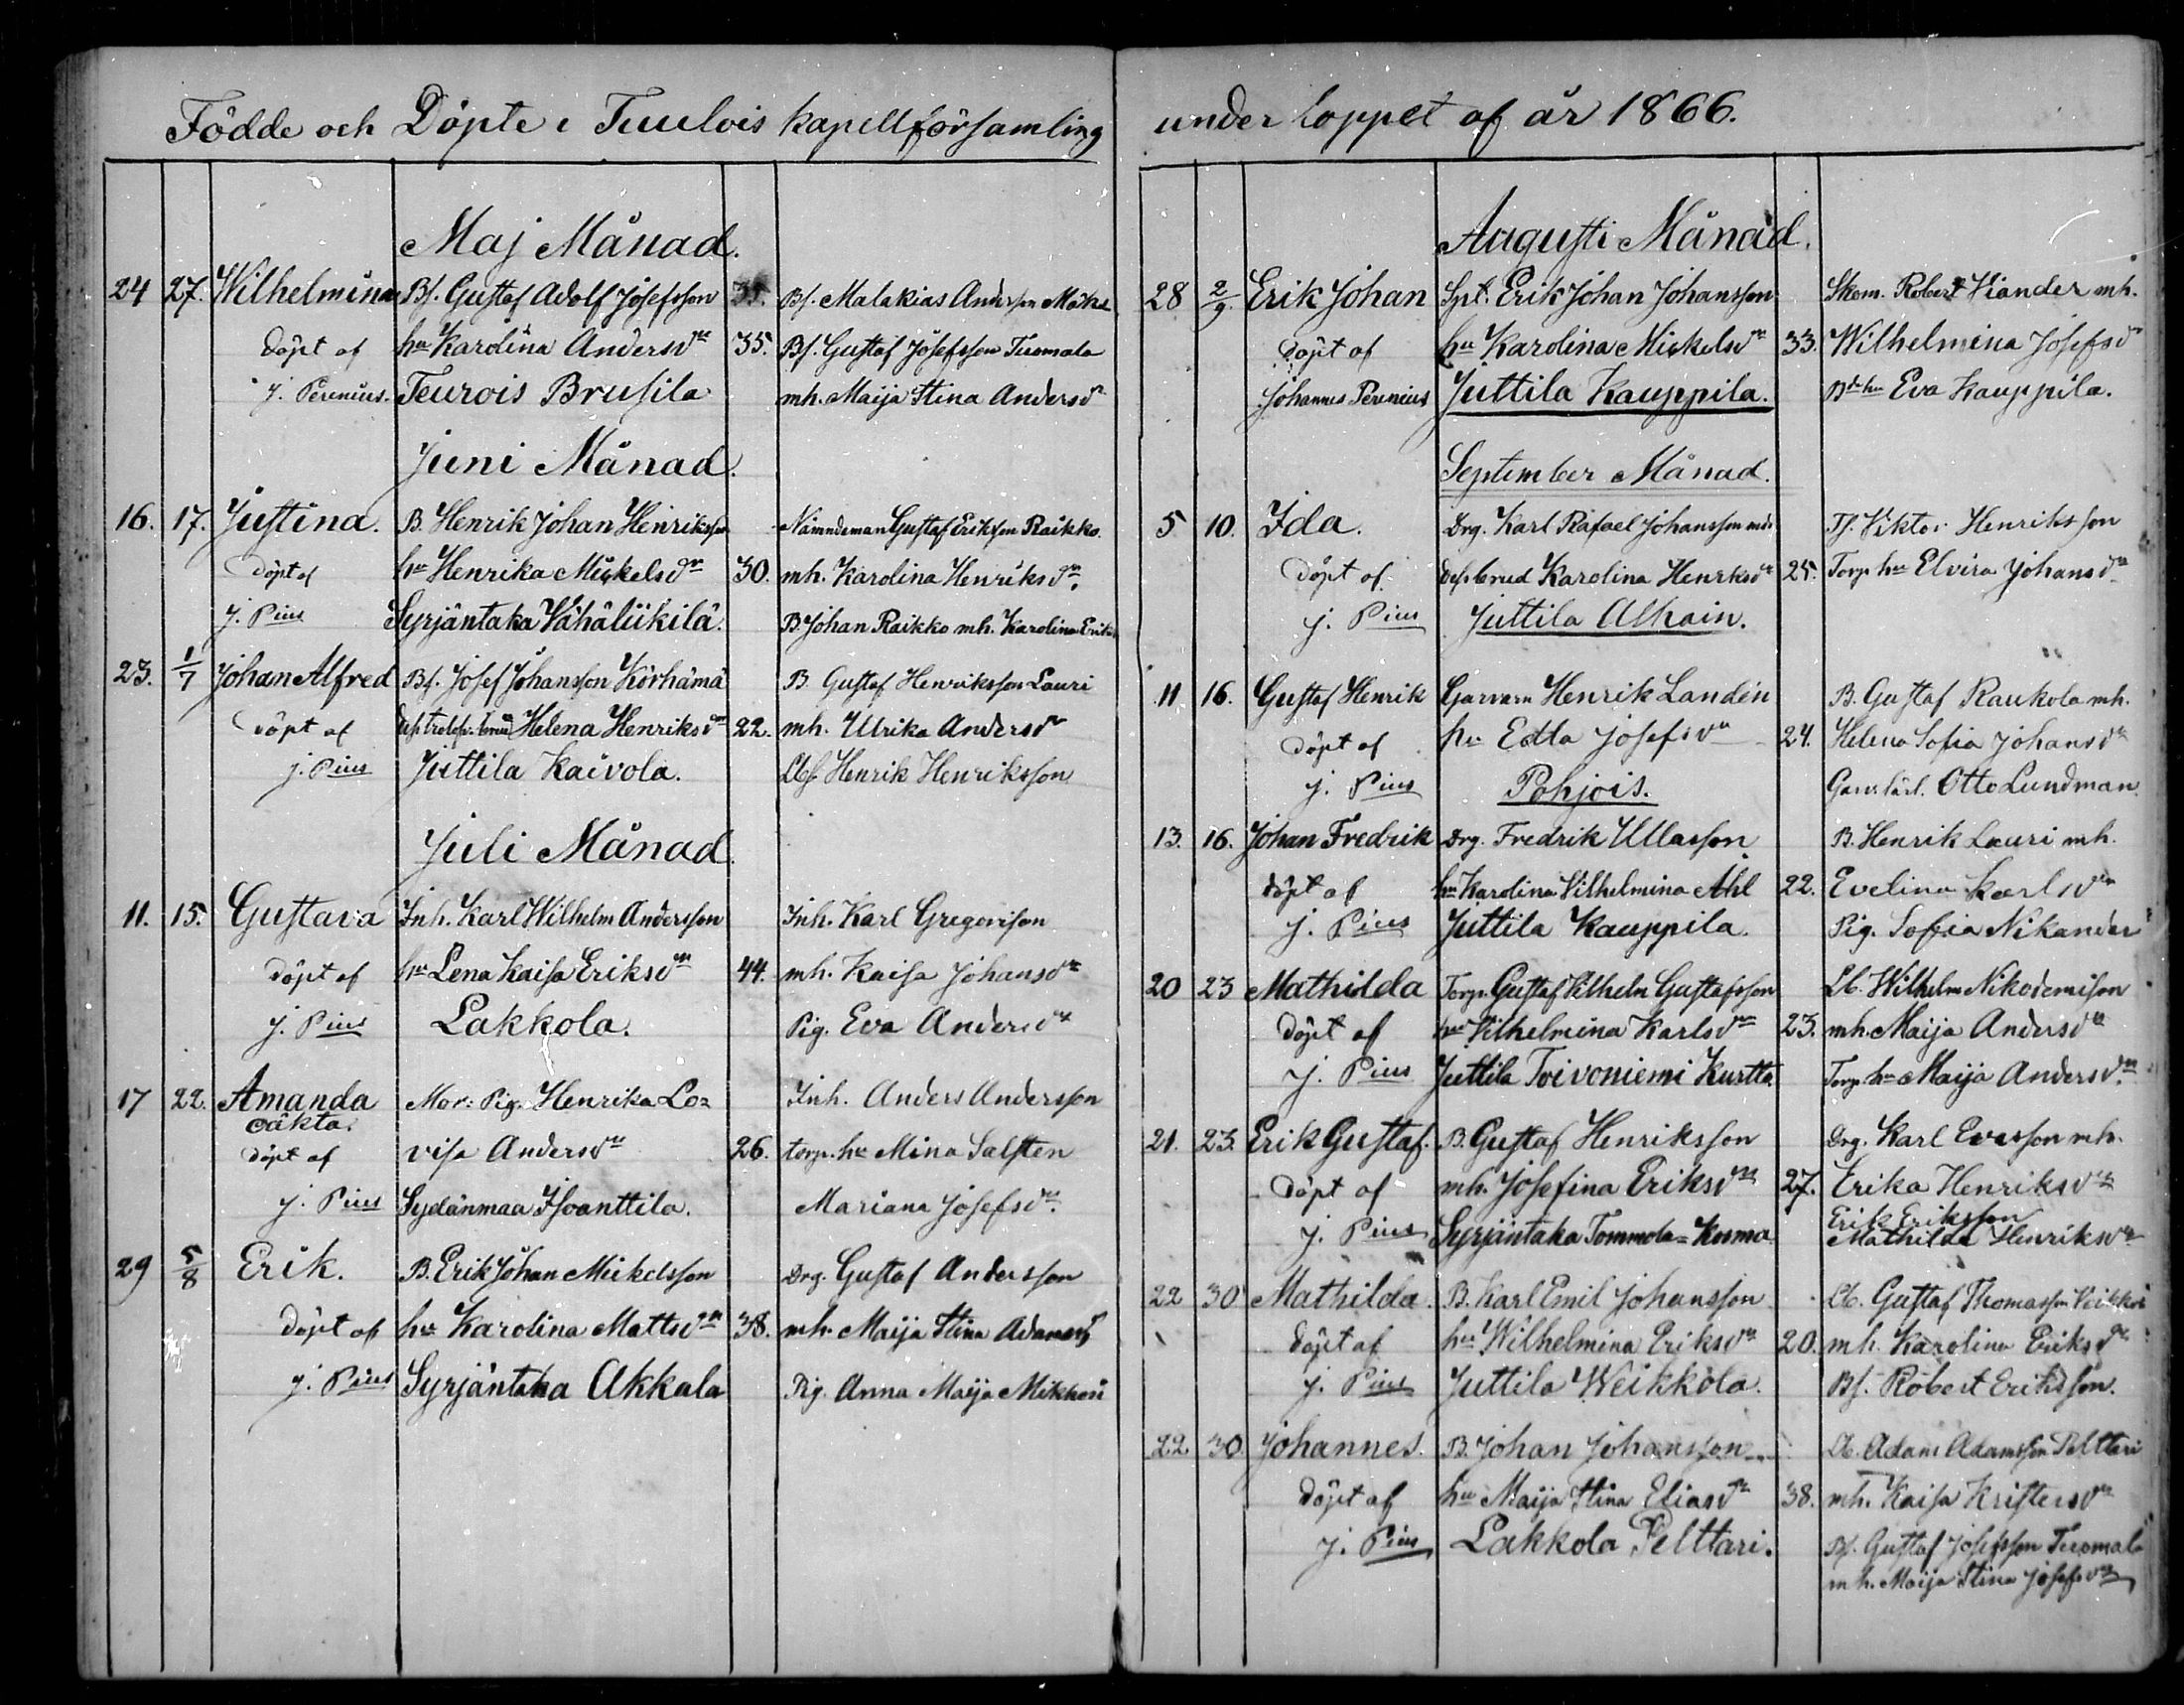 Födde och Döpte i Tuulois kapellförsamling
Maj Månad.
24 27. Wilhelmina Bs. Gustaf Adolf Josefsson Bs. Malakias Andersson
Döpt af hu Karolina Andersdr 35. Bs. Gustaf Josefsson Tuomala
J. Perenius. Teurois Brusila mh. Maija Stina Andersdr
Juni Månad.
16. 17. Justina. B. Henrik Johan Henriksson Nämndeman Gustaf Eriksson Raikko.
Döpt af hu Henrika Mickelsdr 30. mh. Karolina Henriksdr.
J. Pius Syrjäntaka Vähäliikilä. B. Johan Raikko mh. Karolina Eriks
23. 1/7 Johan Alfred Bs. Josef Johansson Körhämä B. Gustaf Henriksson Lauri
döpt af Helena Henriksdr 22. mh. Ulrika Andersdr
J. Pius Juttila Kaivola. Henrik Henriksson
Juli Månad.
11. 15. Gustava Inh. Karl Wilhelm Andersson Inh. Karl Gregorisson
Döpt af hu Lena Kaisa Eriksdr 44. mh. Kaisa Johansdr
J. Pius Lakkola. Pig. Eva Andersdr
17 22. Amanda Mor: Pig. Henrika Lo= Inh. Anders Andersson
oäkta.
döpt af visa Andersdr 26. torp. hu Mina Salsten
J. Pius Sydänmaa Isoanttila. Mariana Josefsdr.
29 5/8 Erik. B. Erik Johan Mickelsson Drg. Gustaf Andersson
Döpt af hu Karolina Mattsdr 38. mh. Maija Stina
J. Pius Syrjäntaka Akkala Pig. Anna Maija Mikkeri
under loppet af år 1866.
Augusti Månad.
28 2/9. Erik Johan Spl. Erik Johan Johansson Skom. Robert Viander mh.
Döpt af hu Karolina Mickelsdr 33. Wilhelmina Josefsdr
Johannes Perenius Juttila Kauppila. Eva Kauppila.
September Månad.
5 10. Ida. Drg. Karl Rafael Johansson Viktor Henriksson
Döpt af Karolina Henriksdr 25. Torp. hu Elvira Johansdr
J. Pius Juttila Alhain.
11 16. Gustaf Henrik Garvarn Henrik Landén B. Gustaf Raukola mh.
Döpt af hu Edla Josefsdr 24. Helena Sofia Johansdr
J. Pius Pohjois. Garv. lärl. Otto Lundman.
13. 16. Johan Fredrik Drg. Fredrik Ullasson B. Henrik Lauri mh.
döpt af hu Karolina Vilhelmina Ahl 22. Evelina Karlsdr
J. Pius Juttila Kauppila. Pig. Sofia Nikander
20 23 Mathilda Torp. Gustaf Vilhelm Gustafsson Wilhelm Nikodemisson
Döpt af hu Vilhelmina Karlsdr 23. mh. Maija Andersdr
J. Pius Juttila Toivoniemi Kurtta Torp. hu Maija Andersdr.
21. 23 Erik Gustaf. B. Gustaf Henriksson Drg. Karl Evasson mh.
Döpt af mh. Josefina Eriksdr 27. Erika Henriksdr
Erik Eriksson
J. Pius Syrjäntaka Tommola=Kosma Mathilda Henriksdr
22 30 Mathilda. B. Karl Emil Johansson Gustaf Thomasson
Döpt af hu Wilhelmina Eriksdr 20. mh. Karolina Eriksdr
J. Pius Juttila Weikkola. Bs. Robert Eriksson.
22. 30. Johannes. B. Johan Johansson Adam Adamsson Pelttari
Döpt af hu Maija Stina Eliasdr 38. mh. Kaisa Kristersdr
J. Pius Lakkola Pelttari. Bs. Gustaf Josefsson Tuomala
mh. Maija Stina Josefsdr